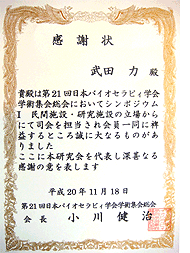 感謝状
武田 力 殿
貴殿は第21回日本バイオセラピィ学会
学術集会総会においてシンポジウム
I 民間施設・研究施設の立場から
にて司会を担当され会員一同に裨益
するところ誠に大なるものがあ
りました
ここに本研究会を代表し深甚なる
感謝の意を表します
平成20年11月18日
第21回日本バイオセラピィ学会学術集会総会
会長 小川健治